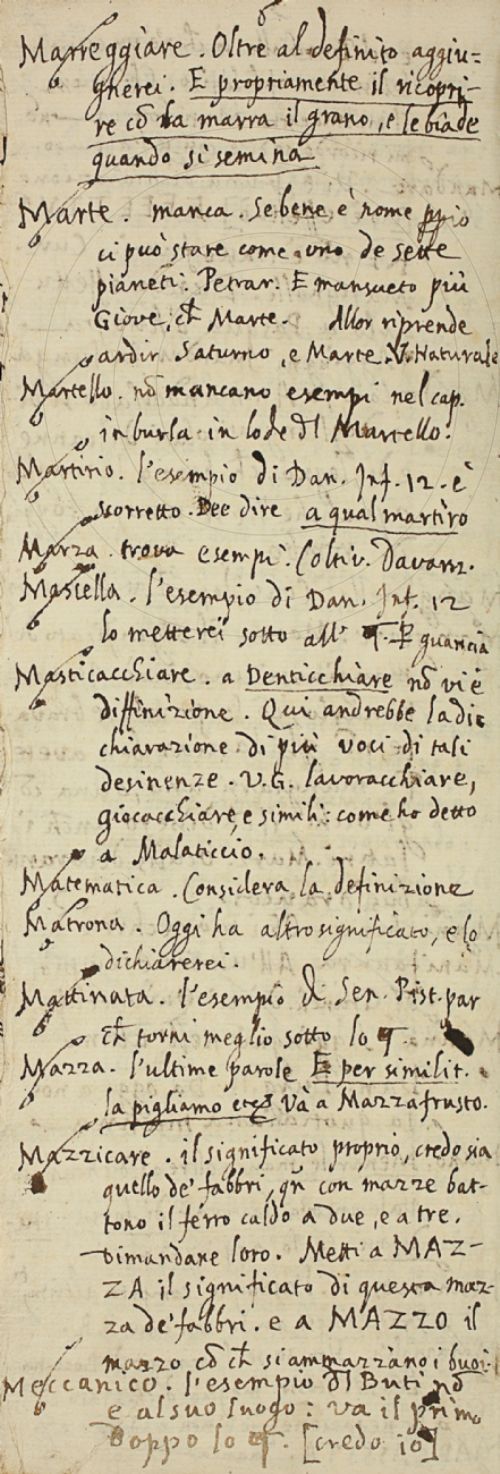 Marreggiare. Oltre al definito aggiu=
gnerei. E propriamente il ricopri-
re cō la marra il grano, e le biade
quando si semina
Marte. manca. Se bene è nome ꝓprio
ci può stare come uno de sette
pianeti. Petrar. E mansueto più
Giove, ch̄ Marte. Allor riprende
ardir Saturno, e Marte. V. Naturale
Martello. nō mancano esempi nel cap.
in burla in lode dl Martello.
Martirio. l'esempio di Dan. Inf. 12. è
scorretto. Dee dire a qual martiro
Marza. trova esempi. Coltiv. Davanz.
Mascella. l'esempio di Dan. Inf. 12
lo metterei sotto all' ¶. P guancia
Masticacchiare. a Denticchiare nō vi è
diffinizione. Qui andrebbe la di
chiarazione di più voci di tali
desinenze. V.G. lavoracchiare,
giocacchiare, e simili: come ho detto
a Malaticcio.
Matematica. Considera la definizione
Matrona. Oggi ha altro significato, e lo
dichiarerei.
Mattinata. l'esempio di Sen. Pist. par
ch̄ torni meglio sotto lo ¶.
Mazza. l'ultime parole E per similit.
la pigliamo etc. và a Mazzafrusto.
Mazzicare. il significato proprio, credo sia
quello de' fabbri, qn̄ con mazze bat-
tono il ferro caldo a due, e a tre.
Dimandane loro. Metti a MAZ-
ZA il significato di questa maz-
za de' fabbri. e a MAZZO il
mazzo cō ch̄ si ammazzano i buoi.
Meccanico. l'esempio dl Buti nō
è al suo luogo: va il primo
doppo lo ¶. [credo io]